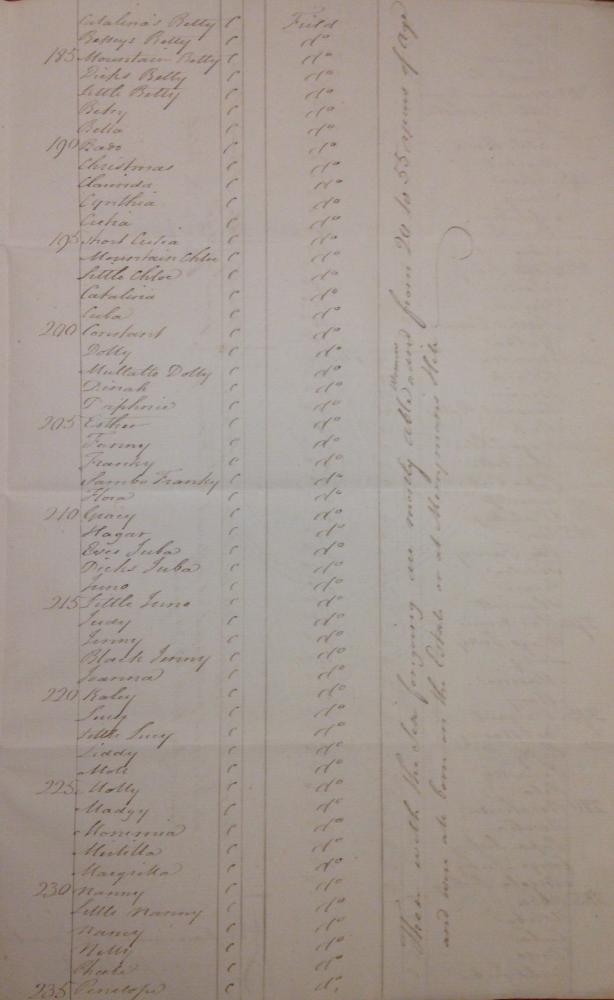 Catalina's Betty C Field
Bessys Betty C do
185 Mountain Betty C do
Dicks Betty C do
Little Betty C do
Betsy C do
Bella C do
190 C do
Christmas C do
Clarinda C do
Cynthia C do
Celia C do
195 Short Celia C do
Mountain Chloe C do
Little Chloe C do
Catalina C do
Cuba C do
200 Constant C do
Dolly C do
Mullatto Dolly C do
Dinah C do
C do
205 Esther C do
Fanny C do
Franky C do
Sambo Franky C do
Flora C do
210 Gracy C do
Hagar C do
Eves Juba C do
Dicks Juba C do
Juno C do
215 Little Juno C do
Judy C do
Jenny C do
Black Jenny C do
Joanna C do
220 C do
Lucy C do
Little Lucy C do
Liddy C do
Moll C do
225 Molly C do
Madgy C do
Monimia C do
C do
Margritta C do
230 Nanny C do
Little Nanny C do
Nancy C do
Nelly C do
Phoebe C do
235 Penelope C do
These with the Six forgoing are mostly able Women and from 20 to 55 years of age
and were all born on the Estate or at Merrymans Hill